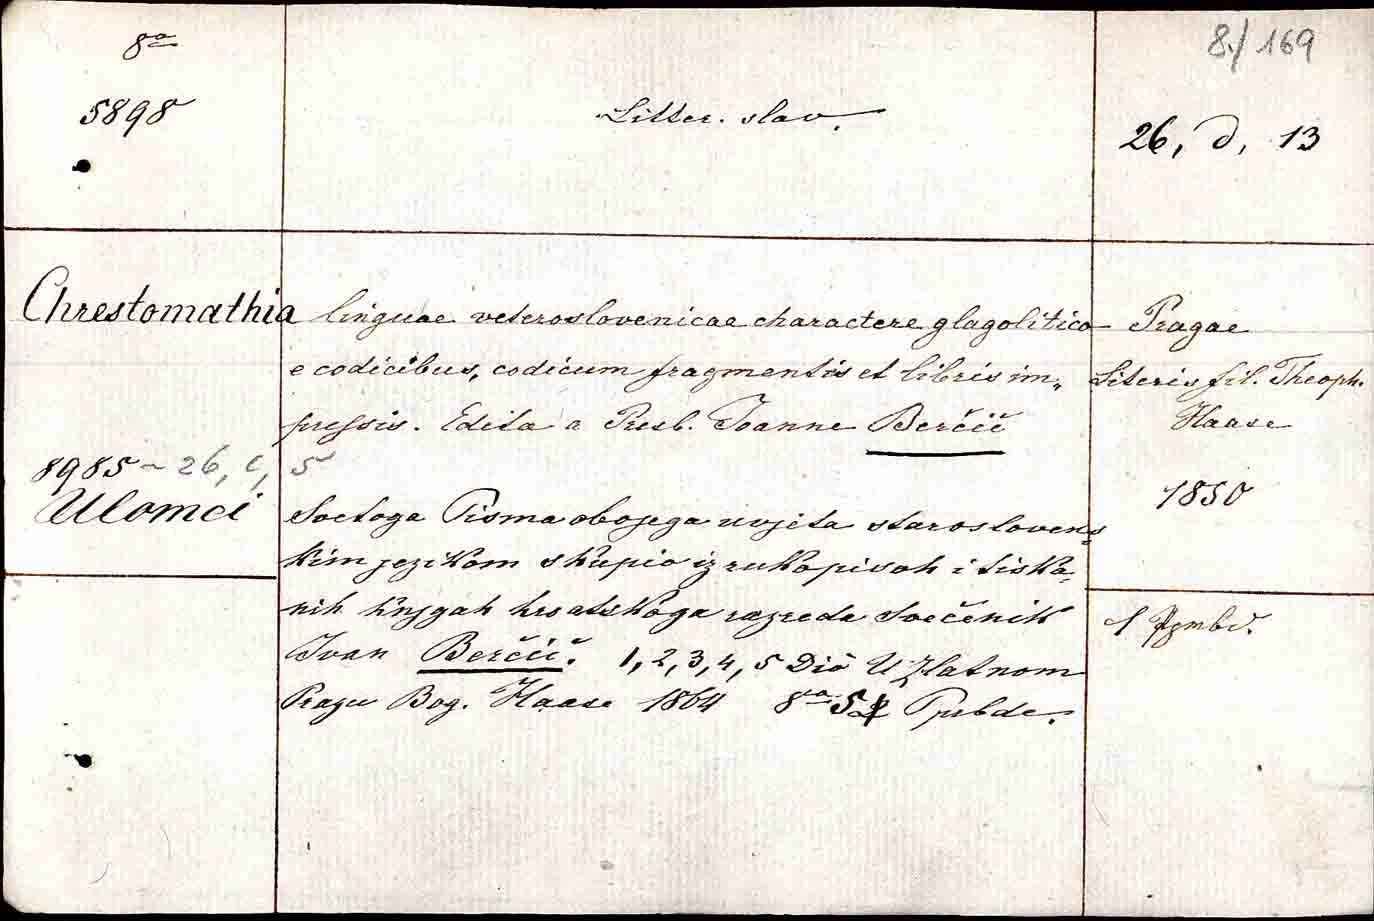 8º
5898
Litter. slav.
8./169
26, d, 13
Chrestomathia
linguae veteroslovenicae charactere glagolitico
e codicibus, codicum fragmentis et libris im„
pressis. Edita a Presb. Joanne Berčič
Pragae
Literis fil. Theoph.
Haase
1850
8985 – 26, c, 5
Ulomci
Svetoga Pisma obojega uvjeta staroslovens„
kim jezikom skupio iz rukopisah i tiska„
nih knjigah hrvatskoga razreda Svečenik
Ivan Berčić. 1, 2, 3, 4, 5 Dio U Zlatnom
Pragu Bog. Haase 1864 8º 5
1